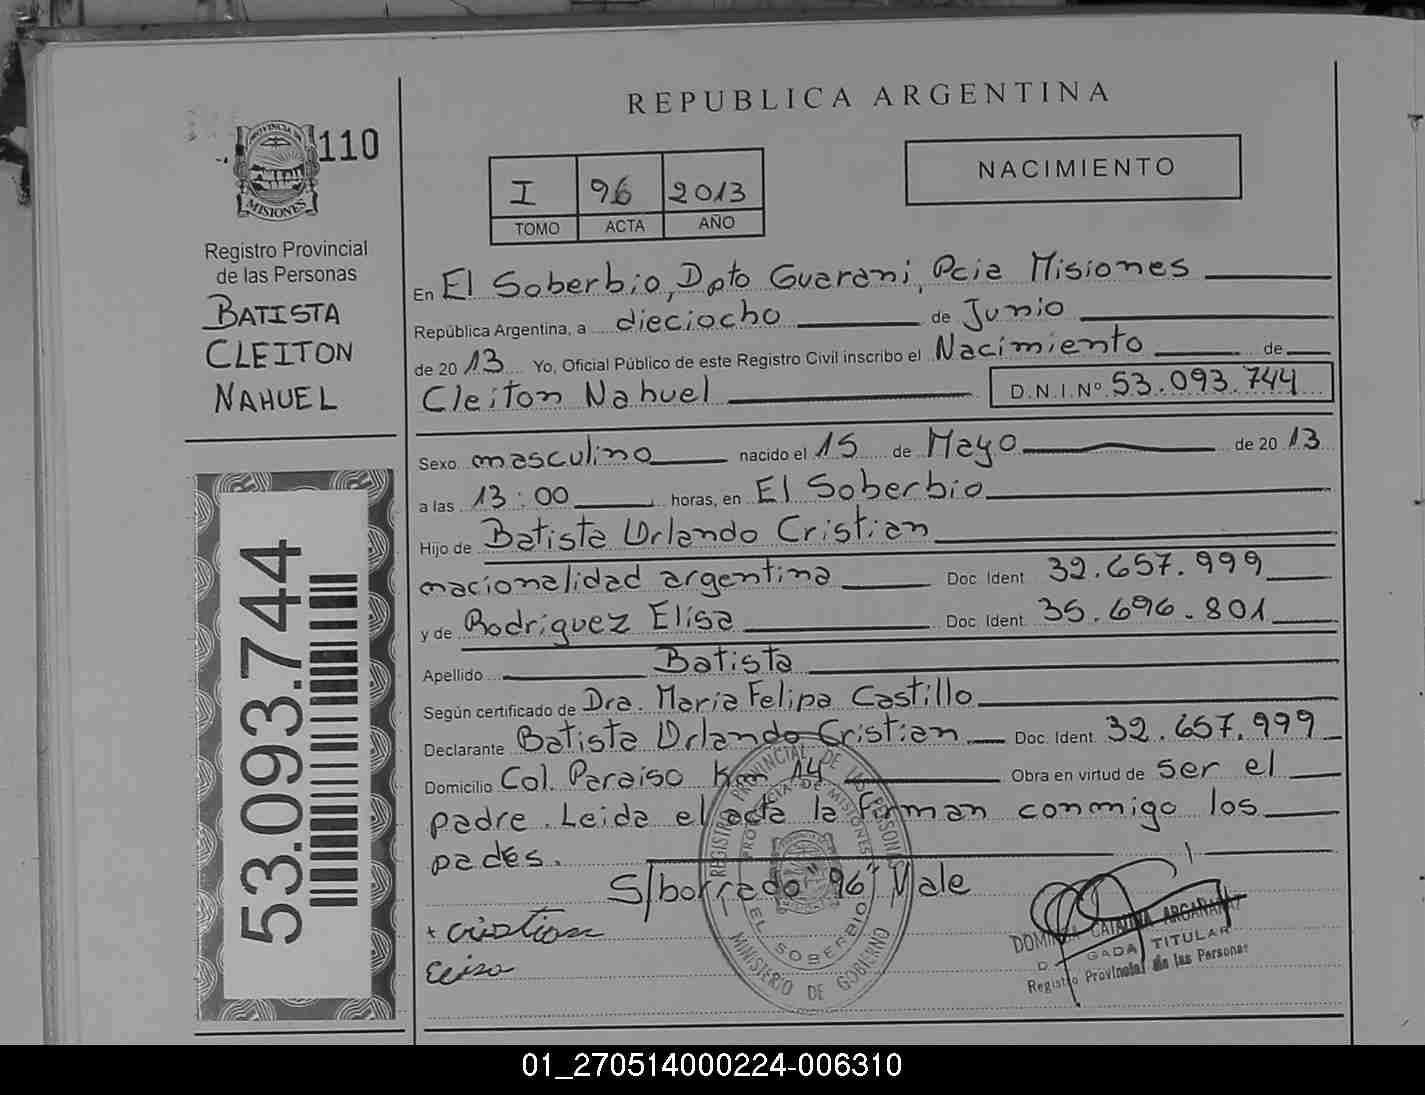 REPUBLICA ARGENTINA
110
PROVINCIA DE
MISIONES
Registro Provincial
de las Personas
BATISTA
CLEITON
NAHUEL
53.093.744
I 96 2013
TOMO ACTA AÑO
NACIMIENTO
En El Soberbio, Dpto Guarani, Pcia Misiones
República Argentina, a dieciocho de Junio
de 2013 Yo, Oficial Público de este Registro Civil inscribo el Nacimiento de
Cleiton Nahuel D.N.I.Nº 53.093.744
Sexo masculino nacido el 15 de Mayo de 2013
a las 13:00 horas, en El Soberbio
Hijo de Batista Orlando Cristian
nacionalidad argentina Doc Ident 32.657.999
y de Rodriguez Elisa Doc Ident. 35.696.801
Apellido Batista
Según certificado de Dra. Maria Felipa Castillo
Declarante Batista Orlando Cristian Doc. Ident. 32.657.999
Domicilio Col. Paraiso Km 14 Obra en virtud de ser el
padre. Leida el acta la firman conmigo los
pades.
S/borrado "96" Vale
+ cristian
Elisa
REGISTRO PROVINCIAL DE LAS PERSONAS
PROVINCIA DE MISIONES
EL SOBERBIO
MINISTERIO DE GOBIERNO
CATALINA ARGAÑARAZ
TITULAR
Registro Provincial de las Personas
01_270514000224-006310